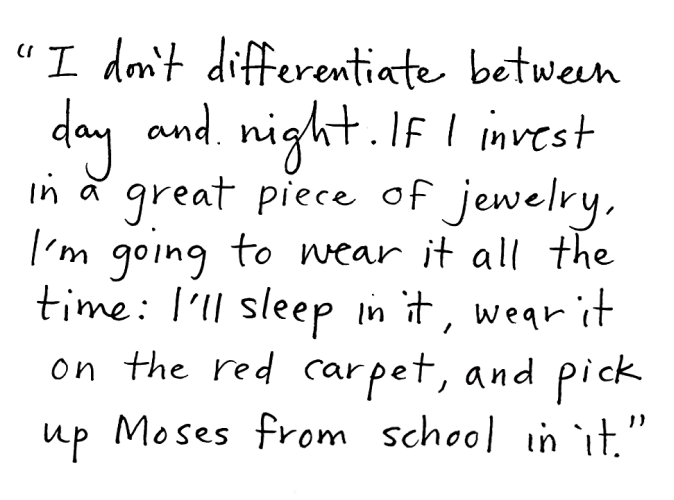 "I don't differentiate between
day and night. If I invest
in a great piece of jewelry,
I'm going to wear it all the
time: I'll sleep in it, wear it
on the red carpet, and pick
up Moses from school in it."